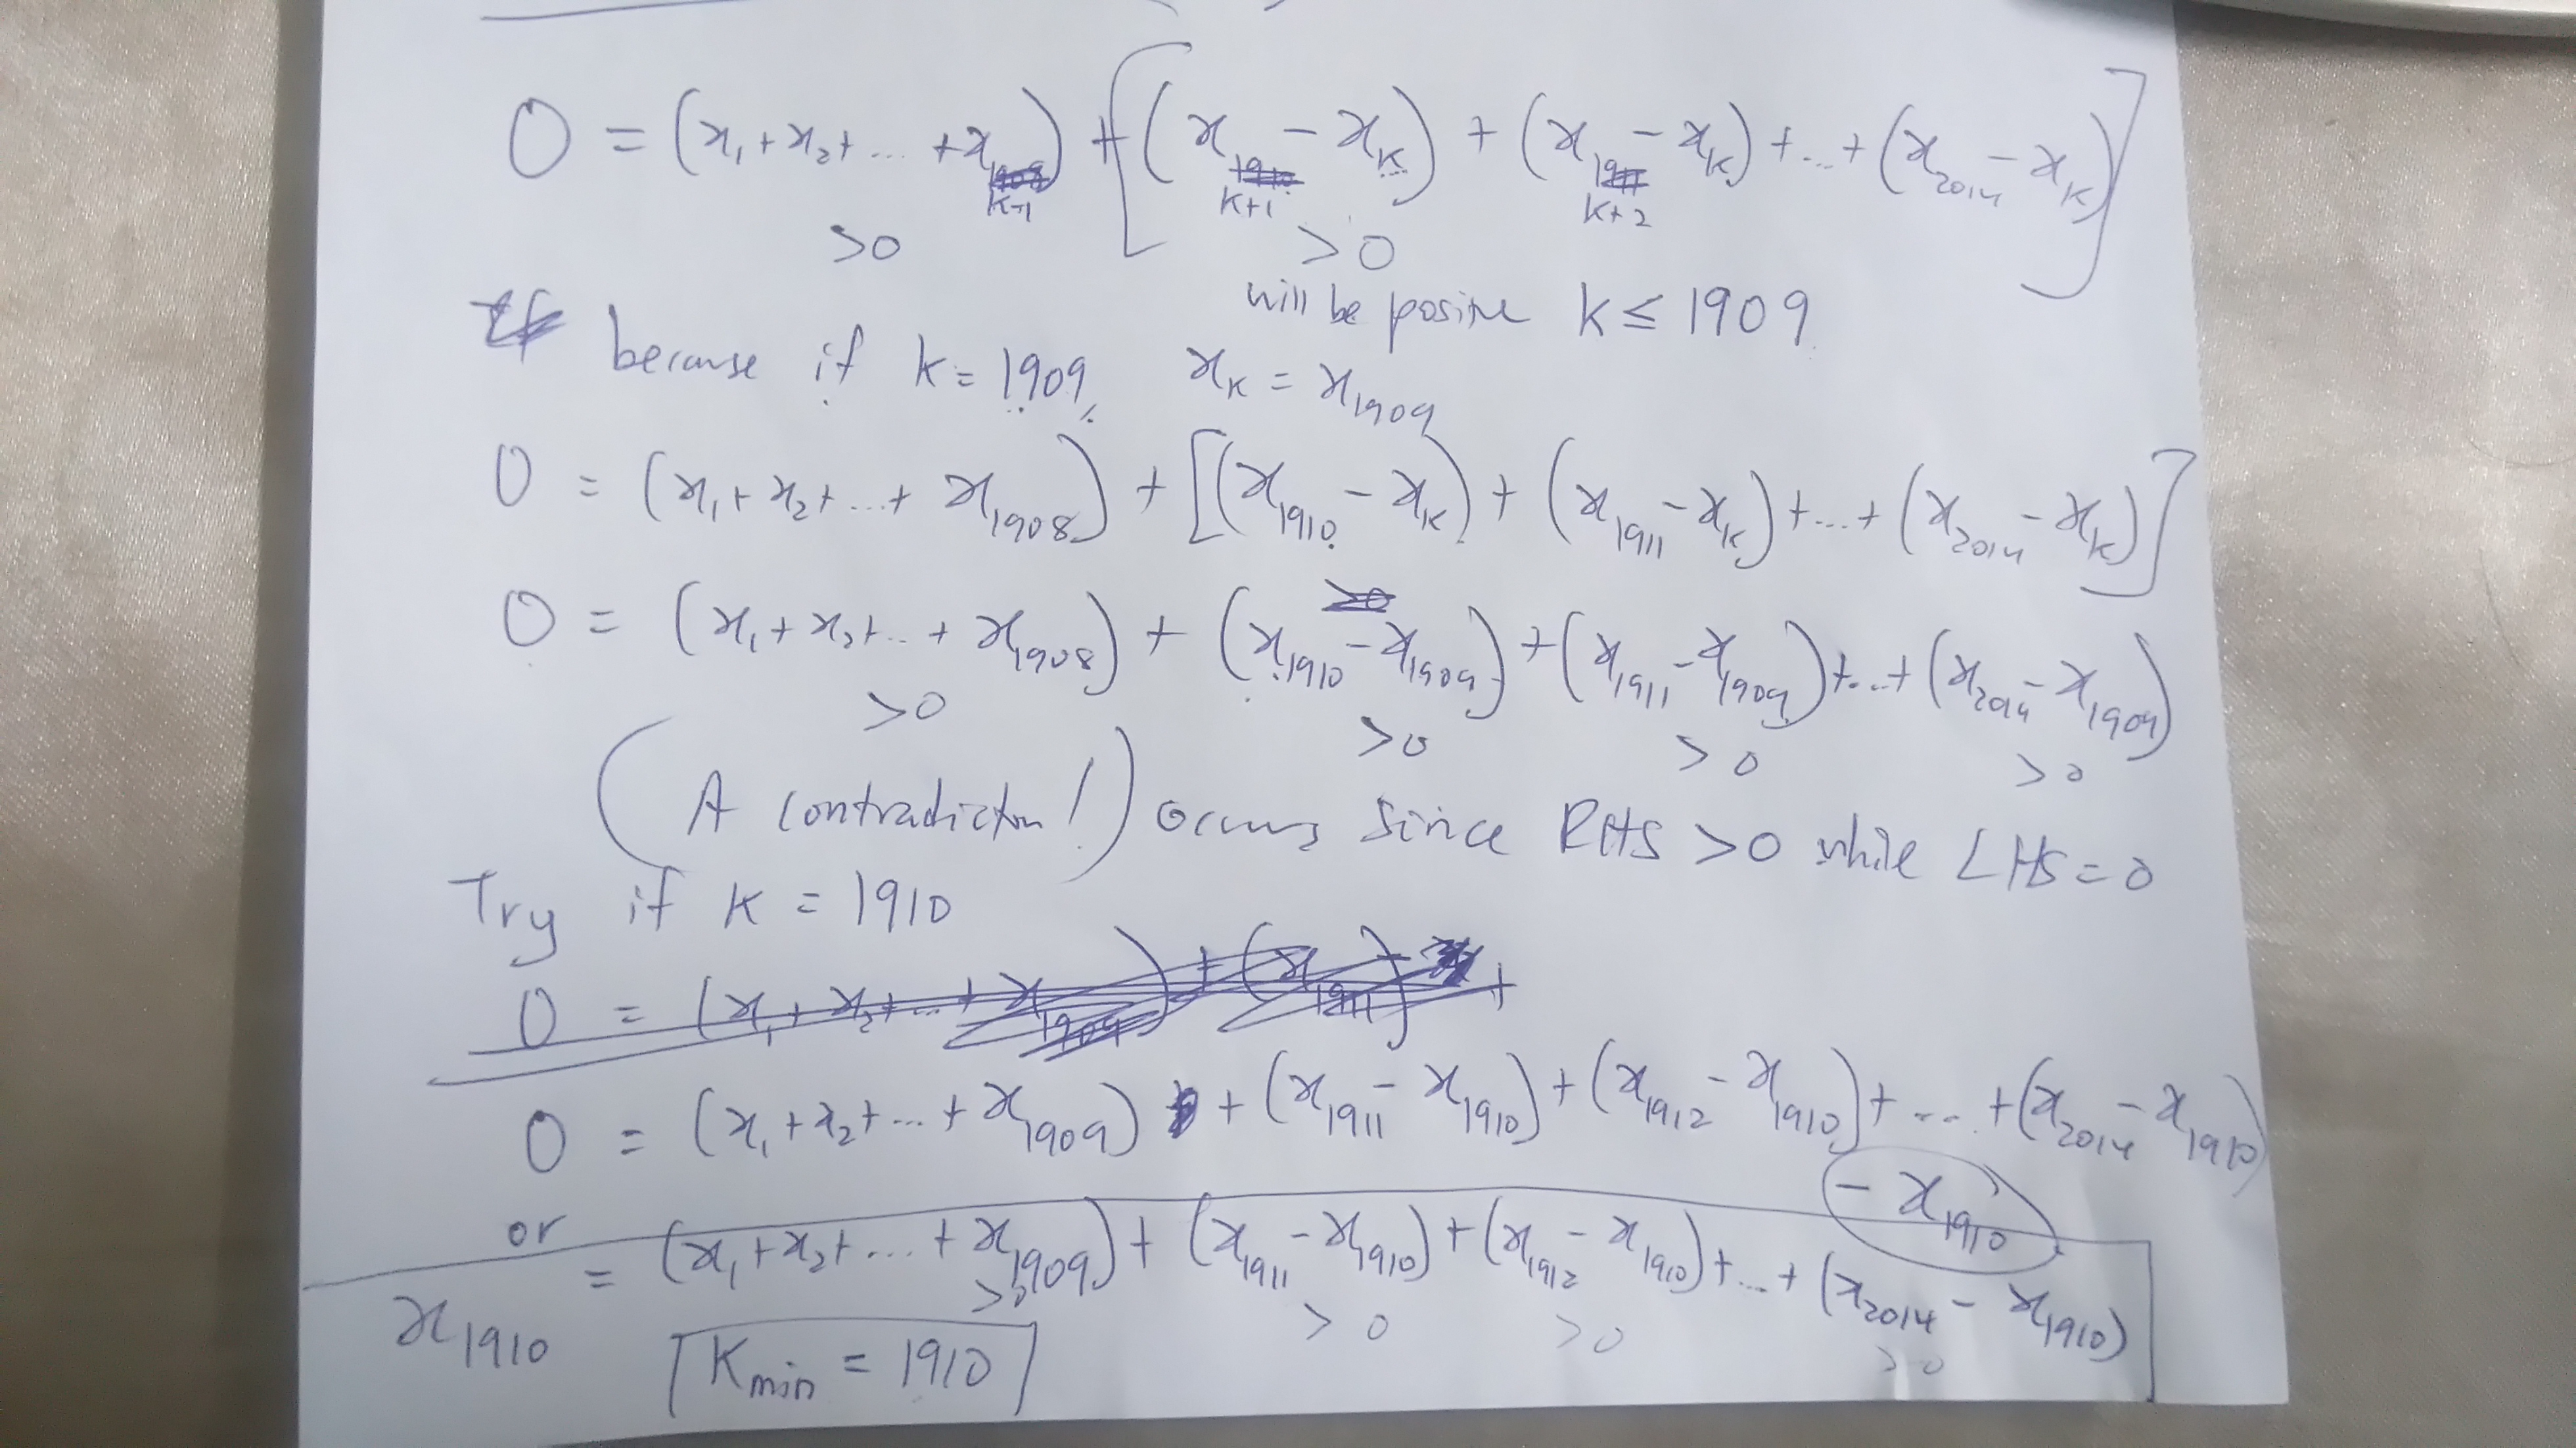 0 = (x₁ + x₂ + ... + x_{k-1}) + [(x_{k+1} - x_k) + (x_{k+2} - x_k) + ... + (x_{2014} - x_k)]
>0 >0
will be positive k ≤ 1909
because if k = 1909, x_k = x_{1909}
0 = (x₁ + x₂ + ... + x_{1908}) + [(x_{1910} - x_k) + (x_{1911} - x_k) + ... + (x_{2014} - x_k)]
0 = (x₁ + x₂ + ... + x_{1908}) + (x_{1910} - x_{1909}) + (x_{1911} - x_{1909}) + ... + (x_{2014} - x_{1909})
>0 >0 >0 >0
(A contradiction!) occurs since RHS > 0 while LHS = 0
Try if k = 1910
0 = (x₁ + x₂ + ... + x_{1909}) + (x_{1911} - x_{1910}) + (x_{1912} - x_{1910}) + ... + (x_{2014} - x_{1910})
- x_{1910}
or
x_{1910} = (x₁ + x₂ + ... + x_{1909}) + (x_{1911} - x_{1910}) + (x_{1912} - x_{1910}) + ... + (x_{2014} - x_{1910})
>0 >0 >0 >0
K_{min} = 1910